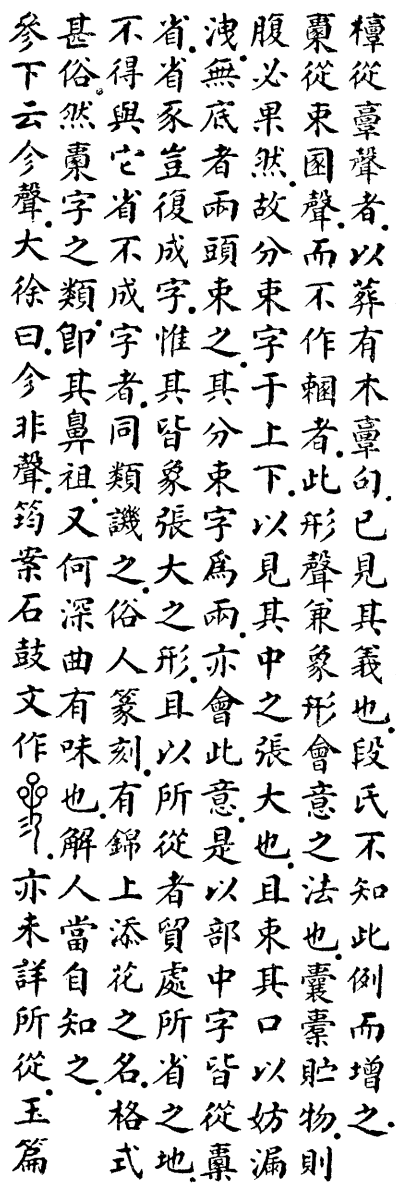 𣝕從𩫏聲者.以葬有木𩫏句.已見其義也.段氏不知此例而增之.
㯻從束圂聲.而不作者.此形聲兼象形會意之法也.囊橐貯物.則
腹必果然.故分束字于上下.以見其中之張大也.且束其口以妨漏
洩.無底者兩頭束之.其分束字爲兩.亦會此意.是以部中字皆從㯻
省.省豕豈復成字.惟其皆象張大之形.且以所從者貿處所省之地.
不得與它省不成字者.同類譏之.俗人篆刻.有錦上添花之名.格式
甚俗.然㯻字之類.卽其鼻祖.又何深曲有味也.解人當自知之.
參下云㐱聲.大徐曰.㐱非聲.筠案石鼓文作.亦未詳所從.玉篇